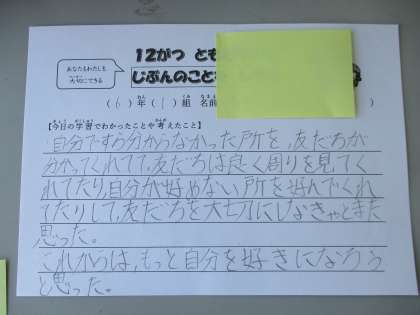 あなたもわたしも
たいせつ
大切にできる
12がつ とも
じぶんのこと
(6)年(1)組 名前 )
【今日の学習でわかったことや考えたこと】
自分ですら分からなかった所を、友だちが
分かってくれてて、友だちは良く周りを見てく
れてたり、自分が好めない所を好んでくれ
てたりして、友だちを大切にしなきゃとまた
思った。
これからは、もっと自分を好きになろう
と思った。